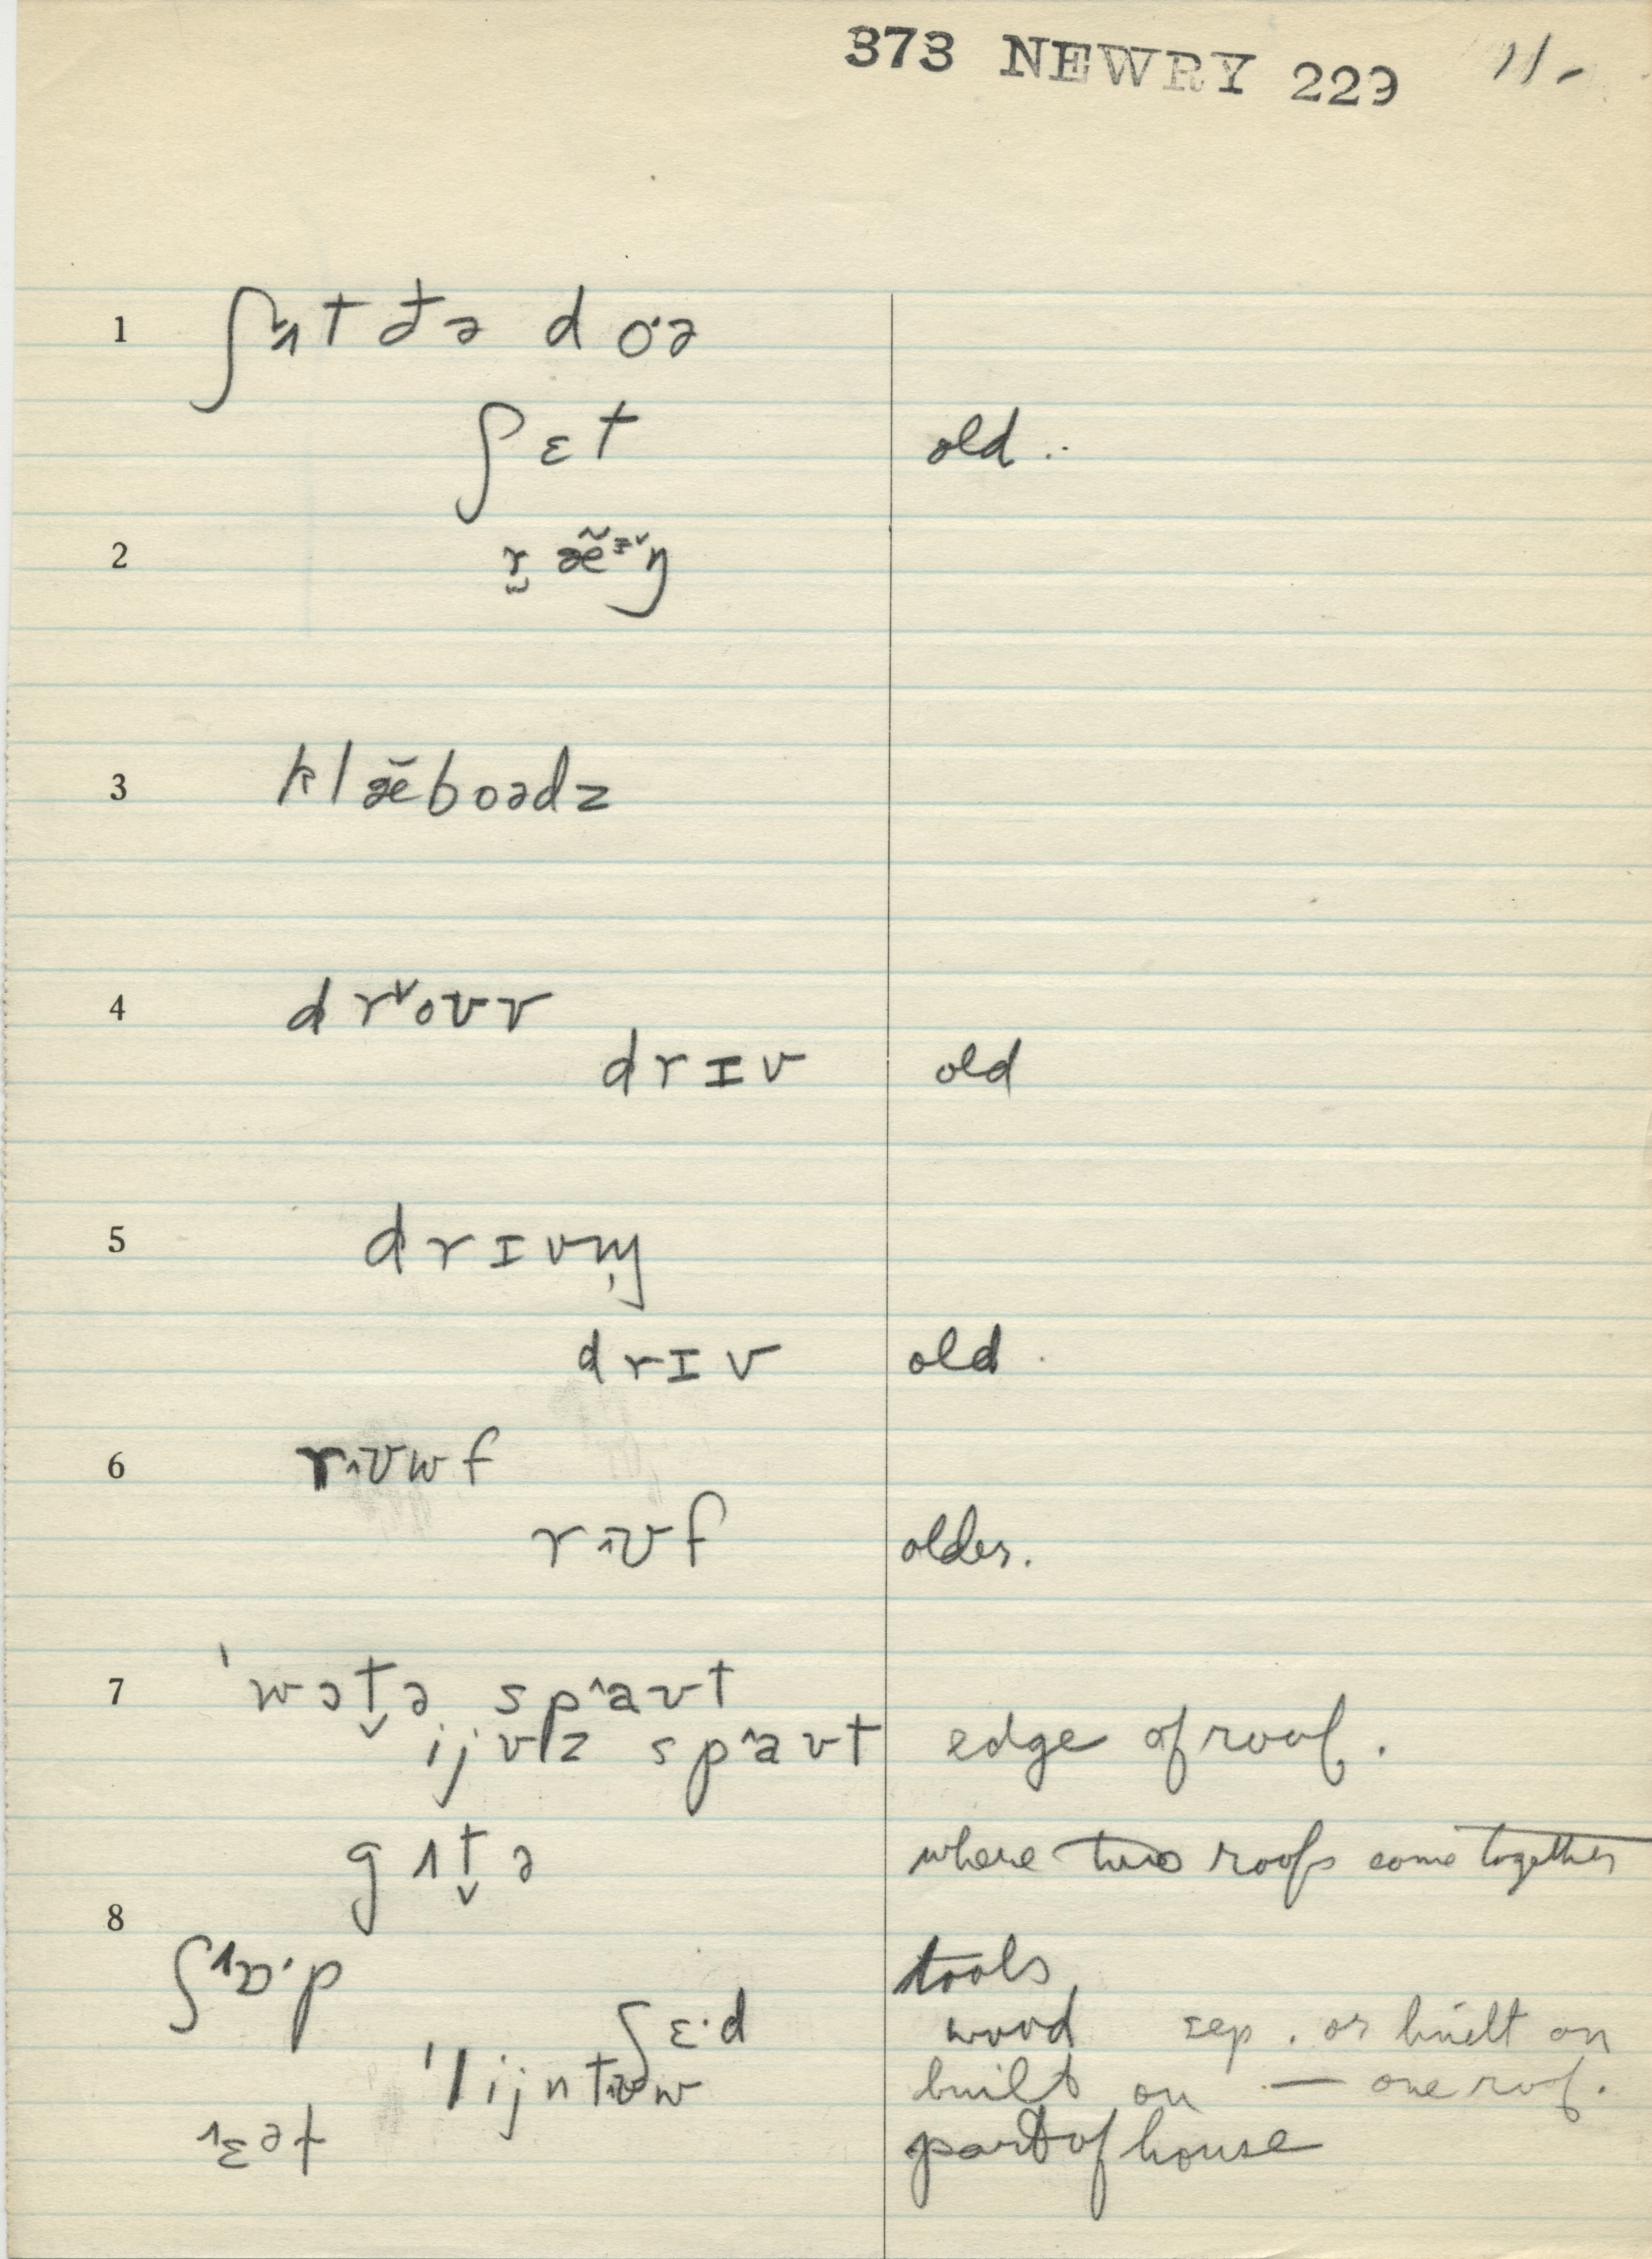 373 NEWRY 229 11-
1 ʃʌtə doˑə
ʃɛt old ..
2 r̬ æ̃ɪ˅ŋ
3 klæ̆boədz
4 drˇoʊv
drɪv old
5 drɪvɪŋ
drɪv old .
6 r˄ʊwf
r˄ʊf older.
7 ˈwɔt̬ə sp˄aʊt
ijvz sp˄aʊt edge of roof.
gʌt̬ə where two roofs come together
8 ʃɒˑp tools
ʃɛˑd wood sep. or built on
ˈlijntʊw built on — one roof.
ɛət part of house